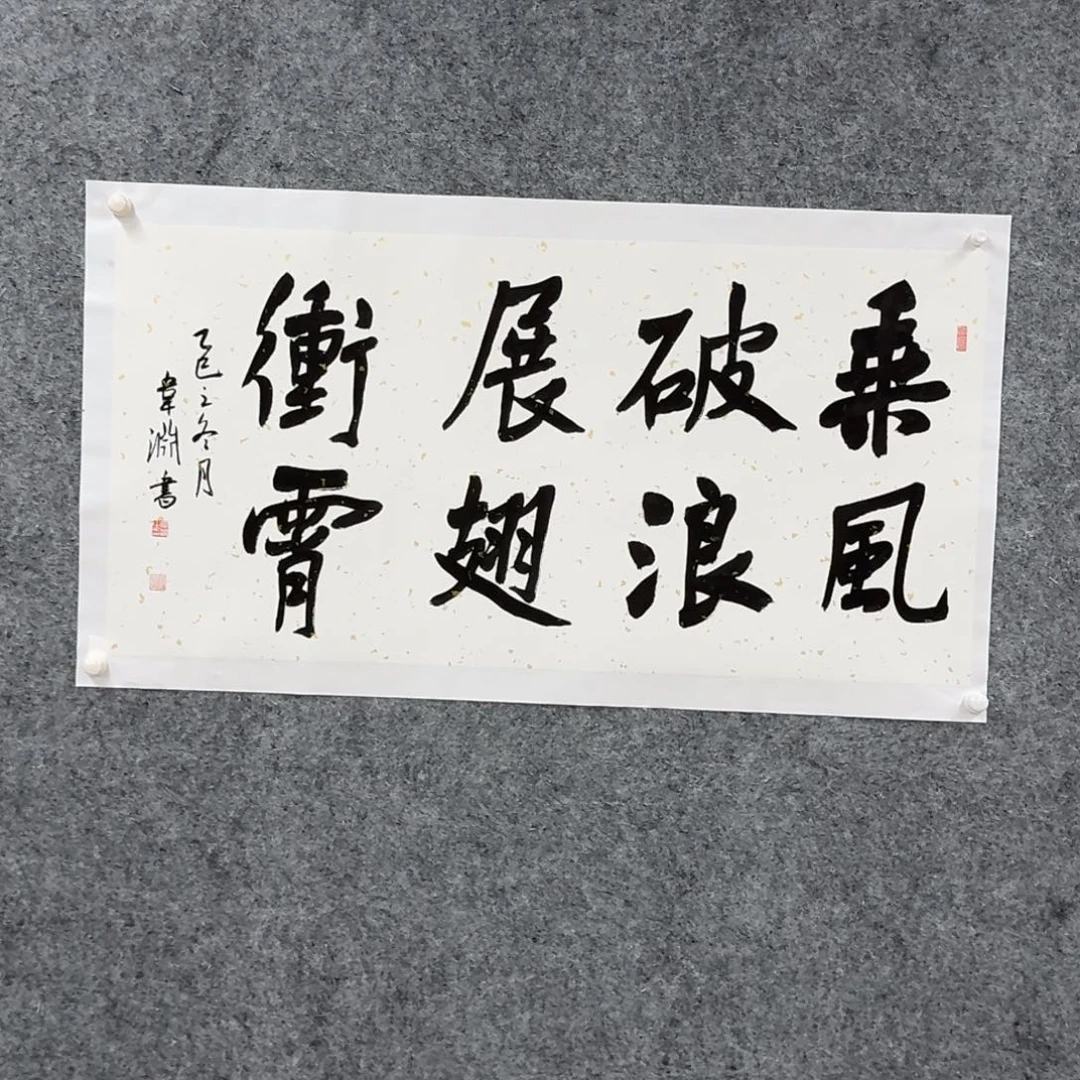 乘風
破浪
展翅
衝霄
乙巳之冬月
韋淵書